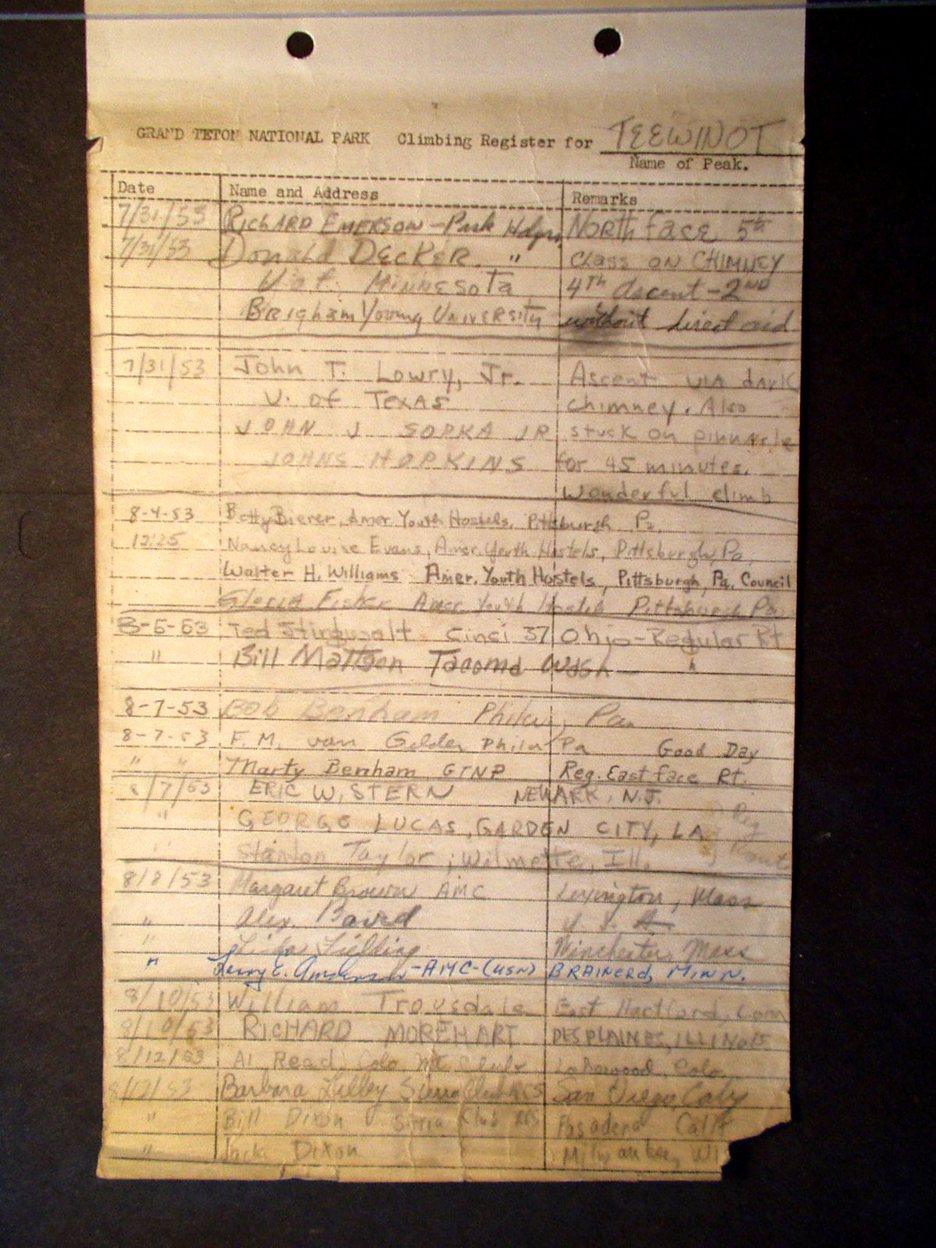 GRAND TETON NATIONAL PARK Climbing Register for TEEWINOT
Name of Peak.
Date Name and Address Remarks
7/31/53 RICHARD EMERSON - Park Hdqs. North face 5th
7/31/53 Donald DECKER " CLASS ON CHIMNEY
U. of. MINNESOTA 4th ascent - 2ND
Brigham Young University without direct aid
7/31/53 John T. Lowry, Jr. Ascent VIA dark
U. of TEXAS chimney. Also
JOHN J SOPKA JR stuck on pinnacle
JOHNS HOPKINS for 45 minutes.
Wonderful climb
8-4-53 Betty Bierer, Amer. Youth Hostels, Pittsburgh Pa.
12:25 Nancy Louise Evans, Amer. Youth Hostels, Pittsburgh, Pa.
Walter H. Williams Amer. Youth Hostels, Pittsburgh, Pa. Council
Gloria Fisher Amer Youth Hostels Pittsburgh Pa.
8-6-53 Ted Cinci 37 Ohio - Regular Rt
" Bill Mattson Tacoma Wash "
8-7-53 Bob Benham Phila, Pa.
8-7-53 F. M. van Gelder Phila Pa Good Day
" " Marty Benham GTNP Reg. East face Rt.
8/7/53 ERIC W. STERN NEWARK, N.J.
" GEORGE LUCAS, GARDEN CITY, LA Reg
" Stanton Taylor, Wilmette, Ill. Route
8/8/53 Margaret Brown AMC Lexington, Mass
" Alex. Baird
" Fielding Winchester, Mass
" E. Anderson - AMC - (USN) BRAINERD, MINN.
8/10/53 William Trousdale East Hartford, Conn
8/10/53 RICHARD MOREHART DESPLAINES, ILLINOIS
8/12/53 Al Read Colo Mt Club Lakewood, Colo
8/12/53 Barbara Lilley Sierra Club RCS San Diego, Calif
" Bill Dixon Sierra Club RCS Pasadena Calif
" Jack Dixon Milwaukee, WI